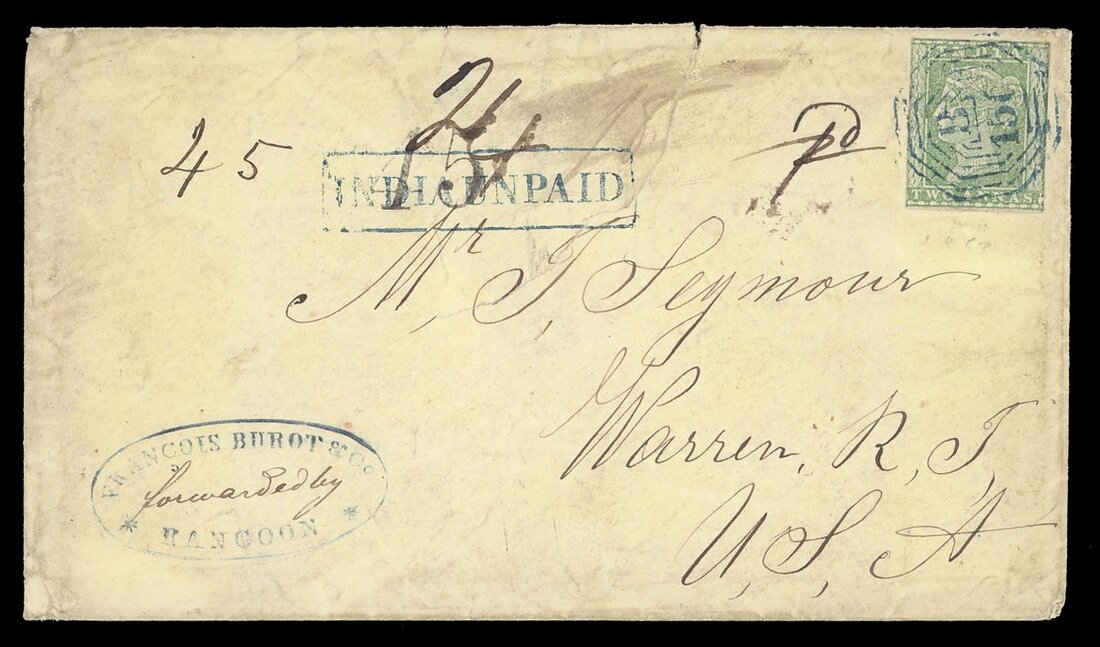 INDIA
B
156
TWO ANNAS
45
2/
pd
INDIA UNPAID
Mr, T, Seymour
Warren, R, I,
U, S, A
FRANCOIS BUROT & Co
forwarded by
* RANGOON *